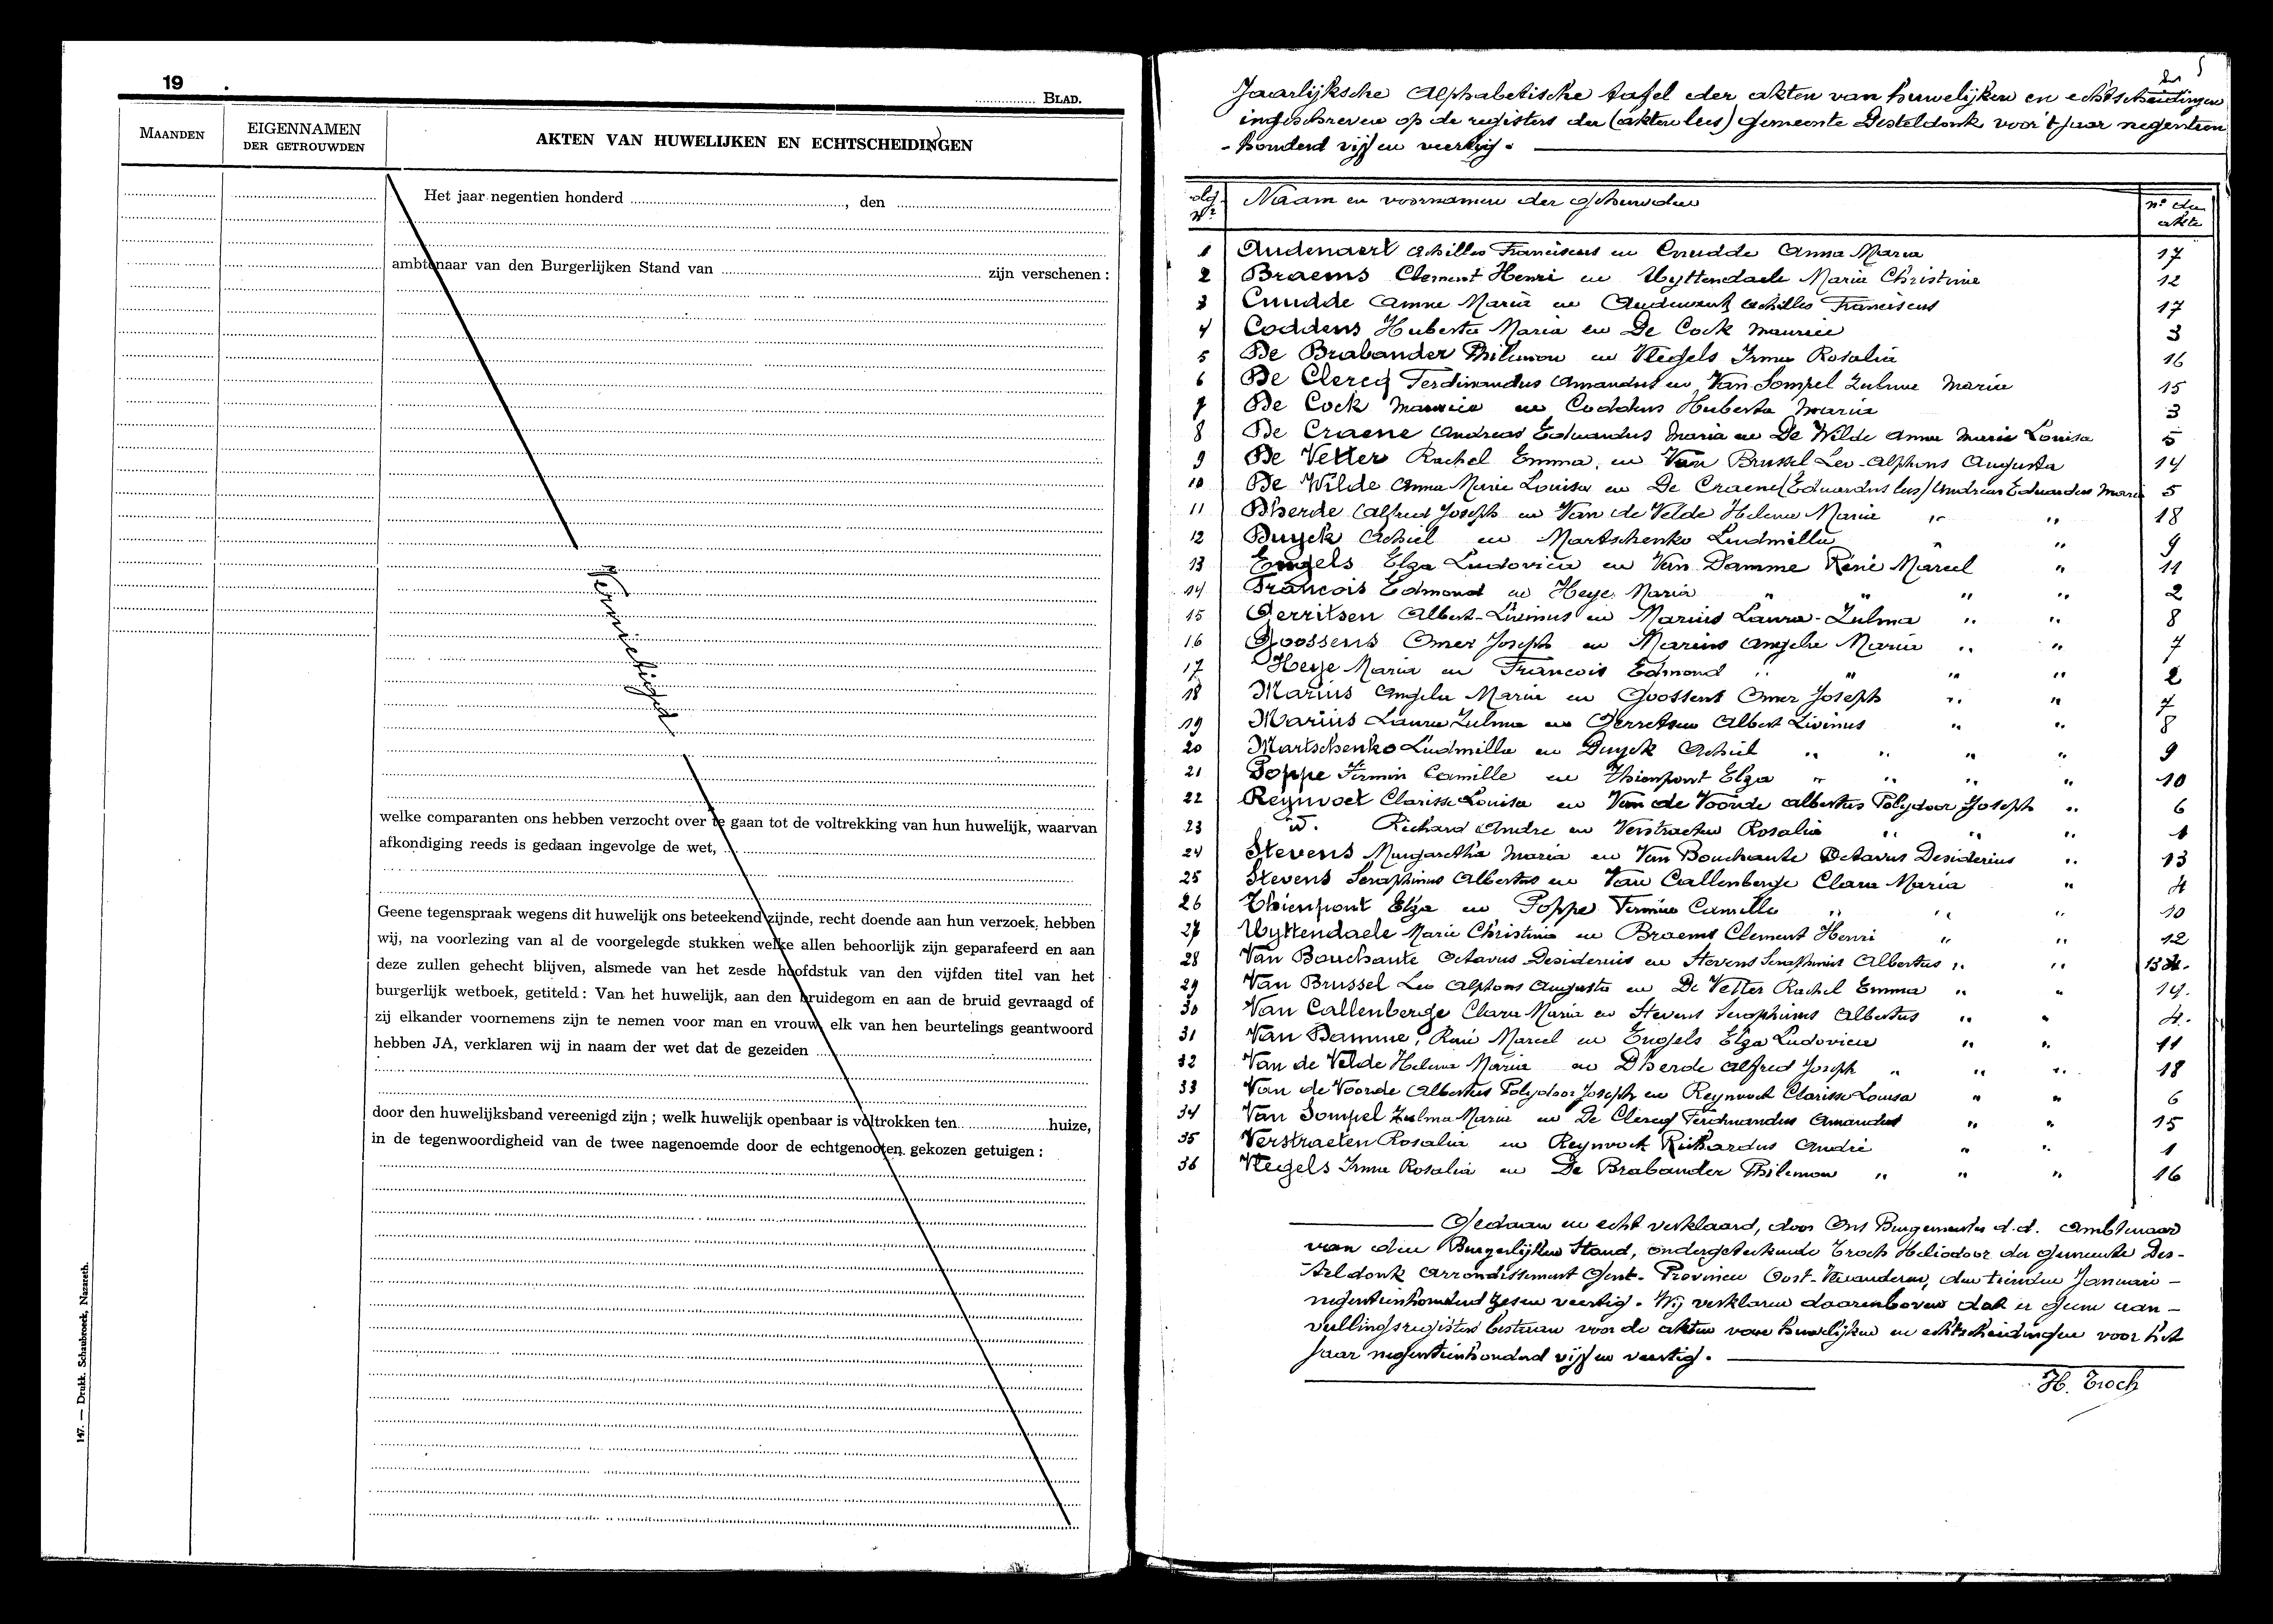 19 .
BLAD.
MAANDEN
EIGENNAMEN
DER GETROUWDEN
AKTEN VAN HUWELIJKEN EN ECHTSCHEIDINGEN
Het jaar negentien honderd , den
ambtenaar van den Burgerlijken Stand van zijn verschenen :
Vernietigd
welke comparanten ons hebben verzocht over te gaan tot de voltrekking van hun huwelijk, waarvan
afkondiging reeds is gedaan ingevolge de wet,
Geene tegenspraak wegens dit huwelijk ons beteekend zijnde, recht doende aan hun verzoek, hebben
wij, na voorlezing van al de voorgelegde stukken welke allen behoorlijk zijn geparafeerd en aan
deze zullen gehecht blijven, alsmede van het zesde hoofdstuk van den vijfden titel van het
burgerlijk wetboek, getiteld : Van het huwelijk, aan den bruidegom en aan de bruid gevraagd of
zij elkander voornemens zijn te nemen voor man en vrouw, elk van hen beurtelings geantwoord
hebben JA, verklaren wij in naam der wet dat de gezeiden
door den huwelijksband vereenigd zijn ; welk huwelijk openbaar is voltrokken ten huize,
in de tegenwoordigheid van de twee nagenoemde door de echtgenooten gekozen getuigen :
147. — Drukk. Schaubroeck, Nazareth.
Jaarlijksche Alphabetische tafel der akten van huwelijken en echtscheidingen
ingeschreven op de registers der (akten lees) gemeente Desteldonk voor 't jaar negentien
-honderd vijf en veertig.
Naam en voornamen der gehuwden nr der akte
1 Audenaert Achilles Franciscus en Cnudde Anna Maria 17
2 Braems Clement Henri en Uyttendaele Maria Christine 12
3 Cnudde Anna Maria en Audenaert Achilles Franciscus 17
4 Coddens Huberta Maria en De Cock Maurice 3
5 De Brabander Philemon en Vlegels Irma Rosalia 16
6 De Clercq Ferdinandus Amandus en Van Sompel Zulma Maria 15
7 De Cock Maurice en Coddens Huberta Maria 3
8 De Craene Andreas Eduardus Maria en De Wilde Anna Marie Louisa 5
9 De Vetter Rachel Emma, en Van Brussel Leo-Alphons Augusta 14
10 De Wilde Anna Marie Louisa en De Craene (Eduardus lees) Andreas Eduardus Maria 5
11 Dherde Alfred Joseph en Van de Velde Helena Maria " " 18
12 Duyck Achiel en Martschenko Ludmilla " " 9
13 Engels Elza Ludovica en Van Damme René Marcel " 11
14 Francois Edmond en Heye Maria " " " " 2
15 Gerritsen Albert-Livinus en Marius Laura-Zulma " " 8
16 Goossens Omer Joseph en Marius Angela Maria " " 7
17 Heye Maria en Francois Edmond " " " " 2
18 Marius Angela Maria en Goossens Omer Joseph " " 7
19 Marius Laura Zulma en Gerretsen Albert Livinus " " 8
20 Martschenko Ludmilla en Duyck Achiel " " " " 9
21 Poppe Firmin Camille en Thienpont Elza " " " " 10
22 Reynvoet Clarisse Louisa en Van de Voorde Albertus Polydoor Joseph " 6
23 id. Richard Andre en Verstraeten Rosalia " " " 1
24 Stevens Margaretha Maria en Van Bouchaute Octavus Desiderius " 13
25 Stevens Seraphinus Albertus en Van Callenberge Clara Maria " 4
26 Thienpont Elza en Poppe Firmin Camille " " " 10
27 Uyttendaele Marie Christine en Braems Clement Henri " " 12
28 Van Bouchaute Octavus Desiderius en Stevens Seraphinus Albertus " " 13
29 Van Brussel Leo Alphons Augusta en De Vetter Rachel Emma " " 14.
30 Van Callenberge Clara Maria en Stevens Seraphinus Albertus " " 4.
31 Van Damme, René Marcel en Engels Elza Ludovica " " 11
32 Van de Velde Helena Maria en Dherde Alfred Joseph " " " 18
33 Van de Voorde Albertus Polydoor Joseph en Reynvoet Clarisse Louisa " " 6
34 Van Sompel Zulma Maria en De Clercq Ferdinandus Amandus " " 15
35 Verstraeten Rosalia en Reynvoet Richardus André " " 1
36 Vlegels Irma Rosalia en De Brabander Philemon " " " 16
Gedaan en echt verklaard, door Ons Burgemeester d.d. Ambtenaar
van den Burgerlijken Stand, ondergeteekende Troch Heliodoor der gemeente Des-
teldonk Arrondissement Gent - Provincie Oost-Vlaanderen, den tienden Januari -
negentienhonderd zes en veertig. Wij verklaren daarenboven dat er geen aan-
vullingsregisters bestaan voor de akten van huwelijken en echtscheidingen voor het
jaar negentienhonderd vijf en veertig.
H. Troch